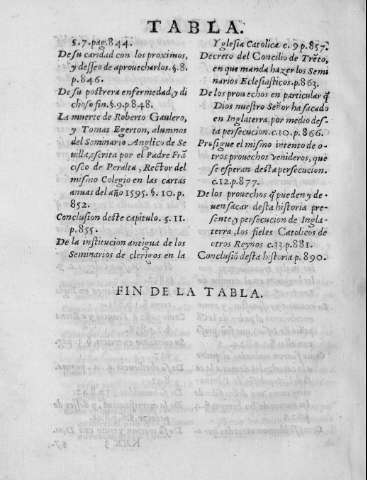 TABLA.
§.7. pag. 844.
De su caridad con los proximos,
y desseo de aprouecharlos. §. 8.
p. 846.
De su postrera enfermedad, y di
choso fin. §. 9. p. 848.
La muerte de Roberto Gaulero,
y Tomas Egerton, alumnos
del Seminario Anglico de Se
uilla, escrita por el Padre Frã
cisco de Peralta, Rector del
mismo Colegio en las cartas
anuas del año 1595. §. 10. p.
852.
Conclusion deste capitulo. §. 11.
p. 855.
De la institucion antigua de los
Seminarios de clerigos en la
Yglesia Catolica c. 9 p. 857.
Decreto del Concilio de Trẽto,
en que manda hazer los Semi
narios Eclesiasticos. p. 863.
De los prouechos en particular q̃
Dios nuestro Señor ha sacado
en Inglaterra, por medio des-
ta persecucion. c. 10. p. 866.
Prosigue el mismo intento de o-
tros prouechos venideros, que
se esperan desta persecucion.
c. 12. p. 877.
De los prouechos q̃ pueden y de-
uen sacar desta historia pre-
sente, y persecucion de Ingla-
terra, los fieles Catolicos de
otros Reynos c. 13. p. 881.
Conclusiõ desta historia p. 890.
FIN DE LA TABLA.